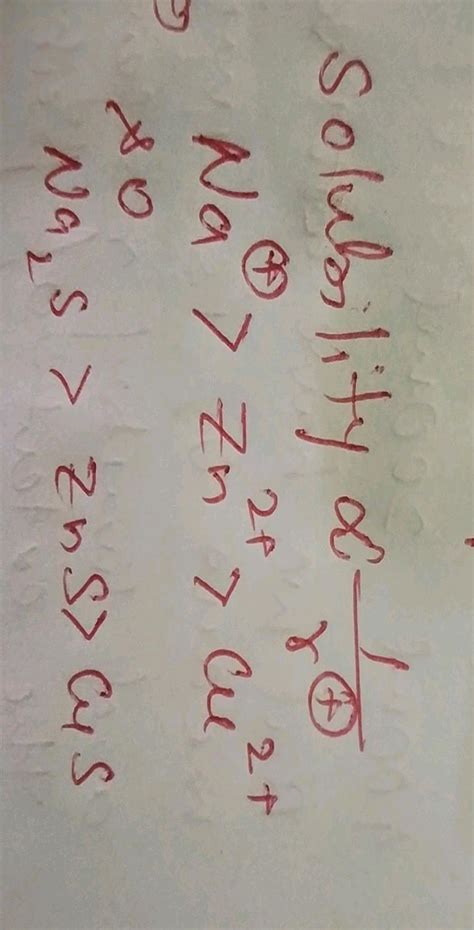 Solubility ∝ 1/r⊕
Na⊕ > Zn2+ > Cu2+
so
Na2S > ZnS > CuS